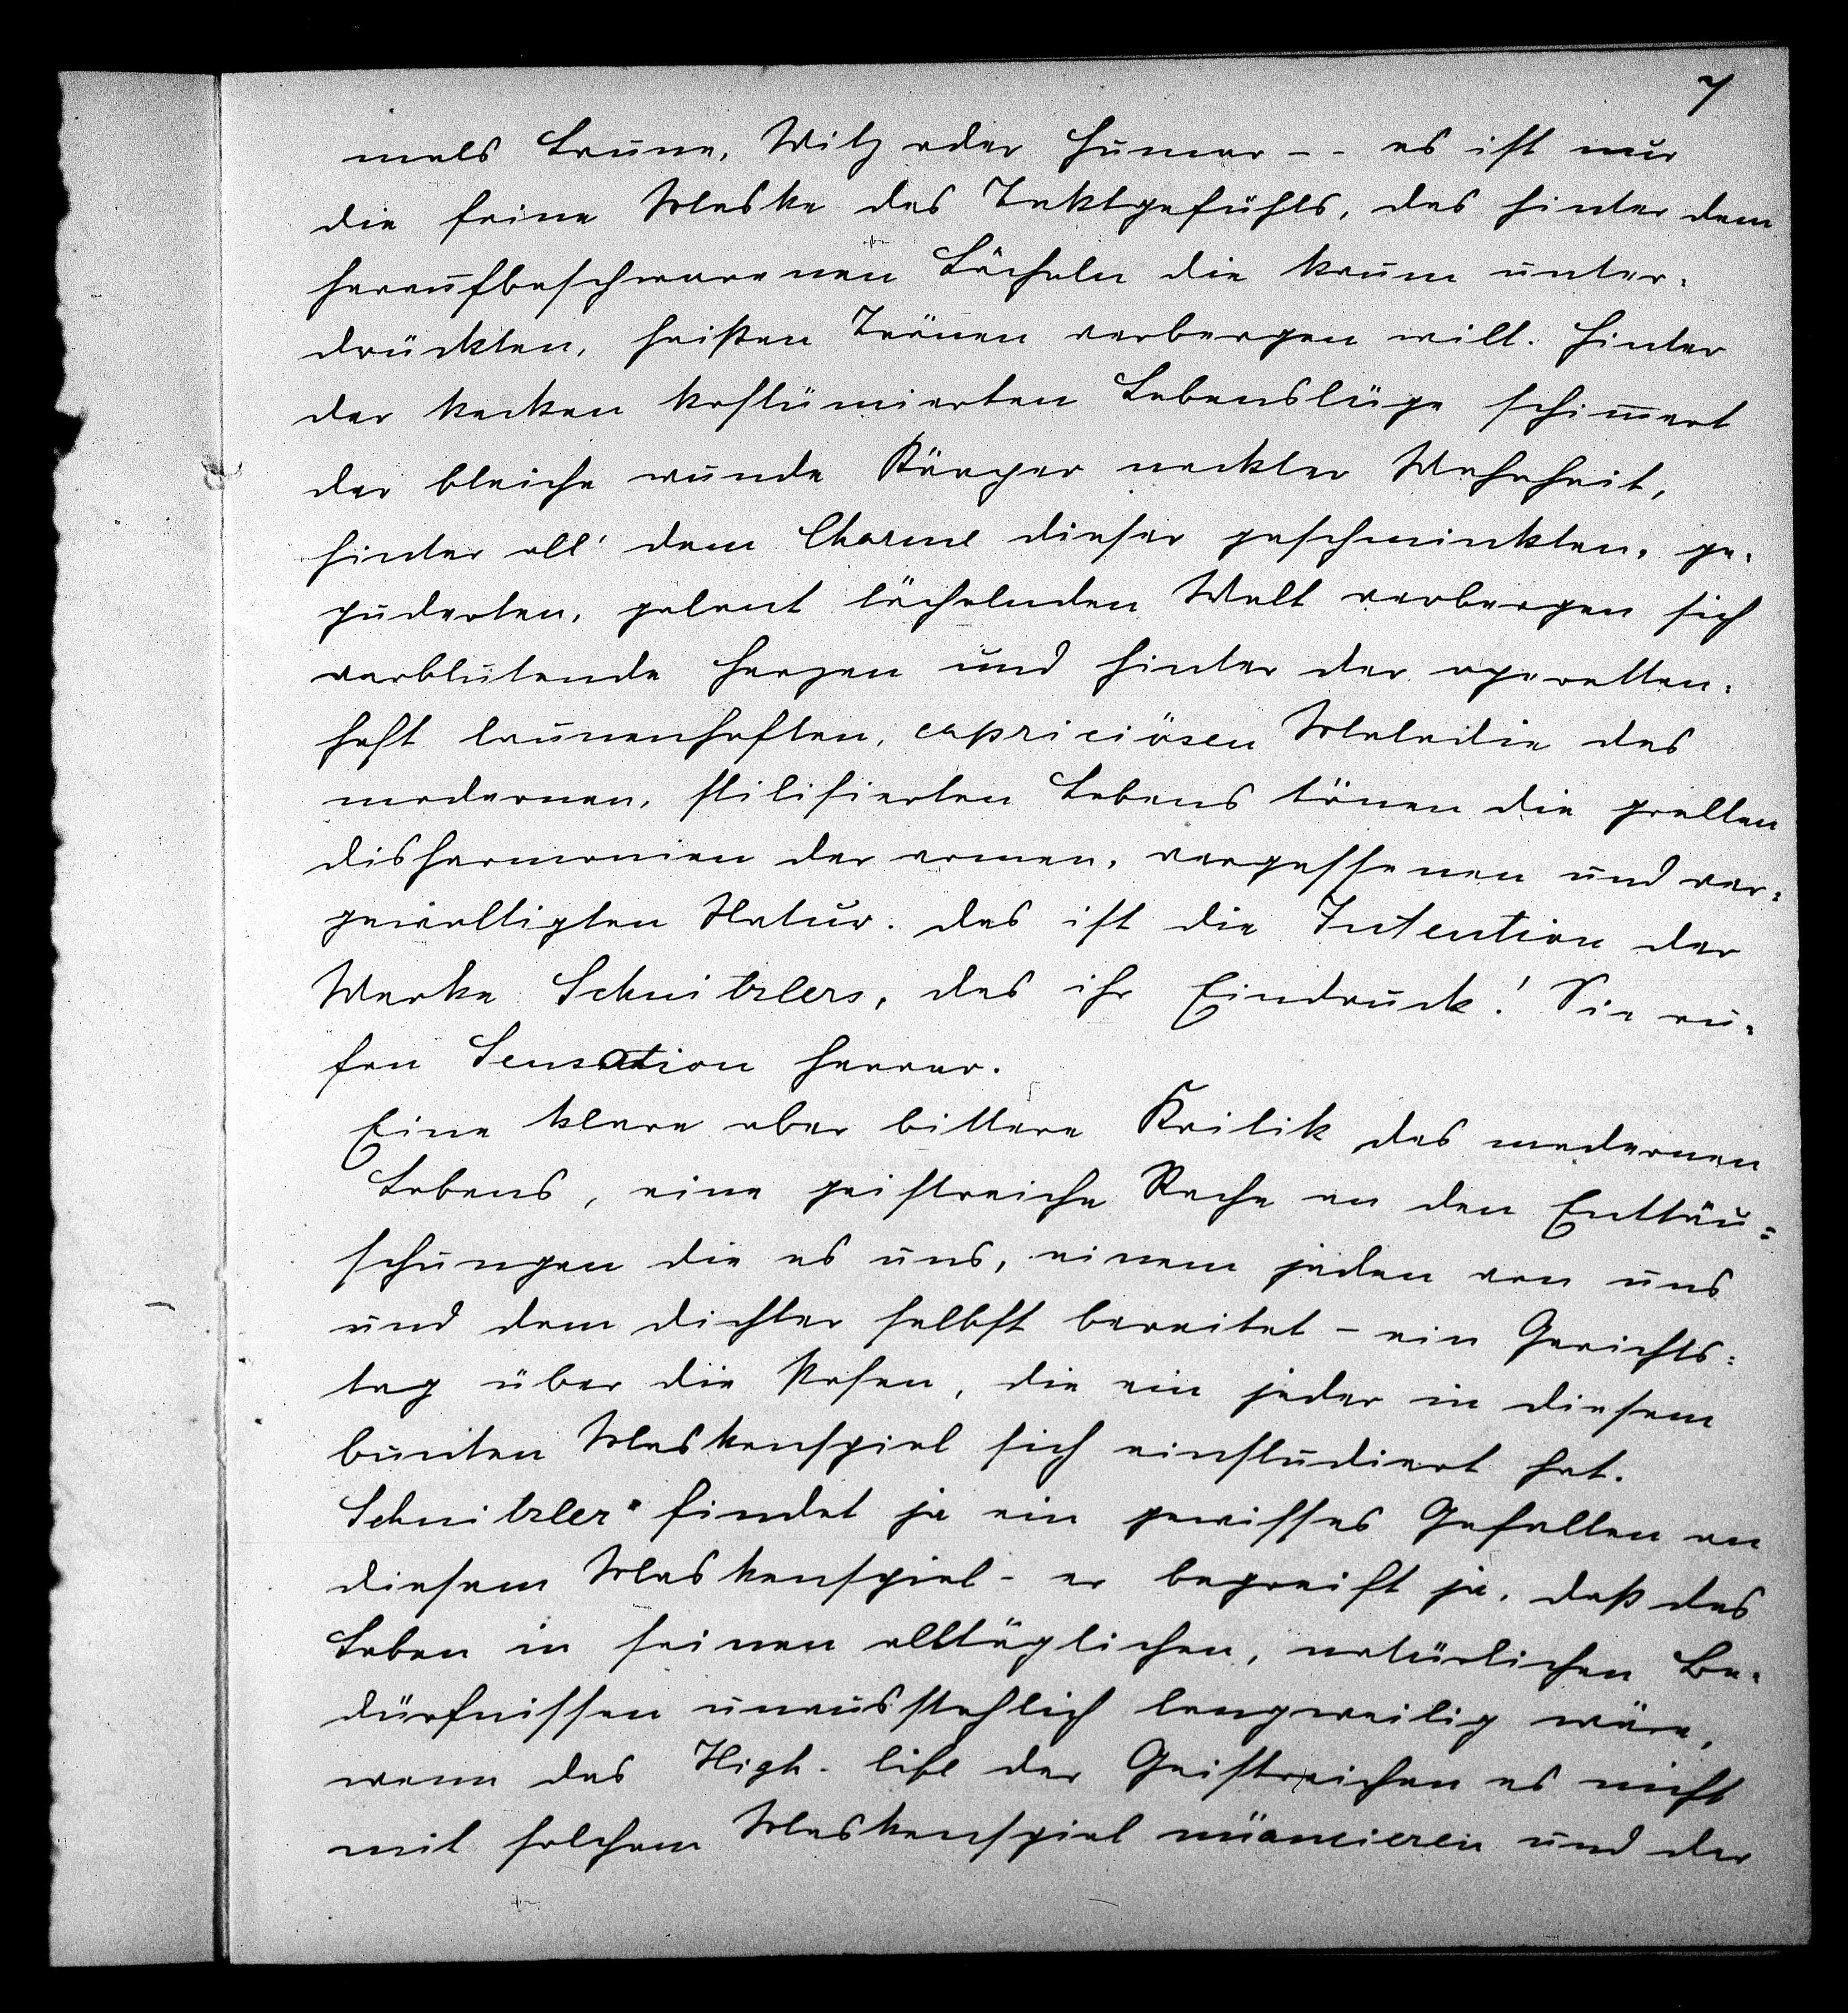 7
mals Laune, Witz oder Humor -- es ist nur
die feine Maske des Taktgefühls, das hinter dem
heraufbeschworenen Lächeln die kaum unter=
drückten, heißen Tränen verbergen will. Hinter
der kecken kostümierten Lebenslüge schimmert
der bleiche wunde Körper nackter Wahrheit,
hinter all' dem Charme dieser geschminkten, ge=
puderten, galant lächelnden Welt verbergen sich
verblutende Herzen und hinter der operetten=
haft launenhaften, capriciösen Melodie des
modernen, stilisierten Lebens tönen die grellen
Disharmonien der armen, vergessenen und ver=
gewaltigten Natur. Das ist die Intention der
Werke Schnitzlers, das ihr Eindruck! Sie ru=
fen Sensation hervor.
Eine klare aber bittere Kritik des modernen
Lebens, eine geistreiche Rache an den Enttäu=
schungen die es uns, einem jeden von uns
und dem Dichter selbst bereitet - ein Gerichts=
tag über die Posen, die ein jeder in diesem
bunten Maskenspiel sich einstudiert hat.
Schnitzler findet ja ein gewisses Gefallen an
diesem Maskenspiel - er begreift ja, daß das
Leben in seinen alltäglichen, natürlichen Be=
dürfnissen unausstehlich langweilig wäre,
wenn das High-life der Geistreichen es nicht
mit solchem Maskenspiel nüancieren und der